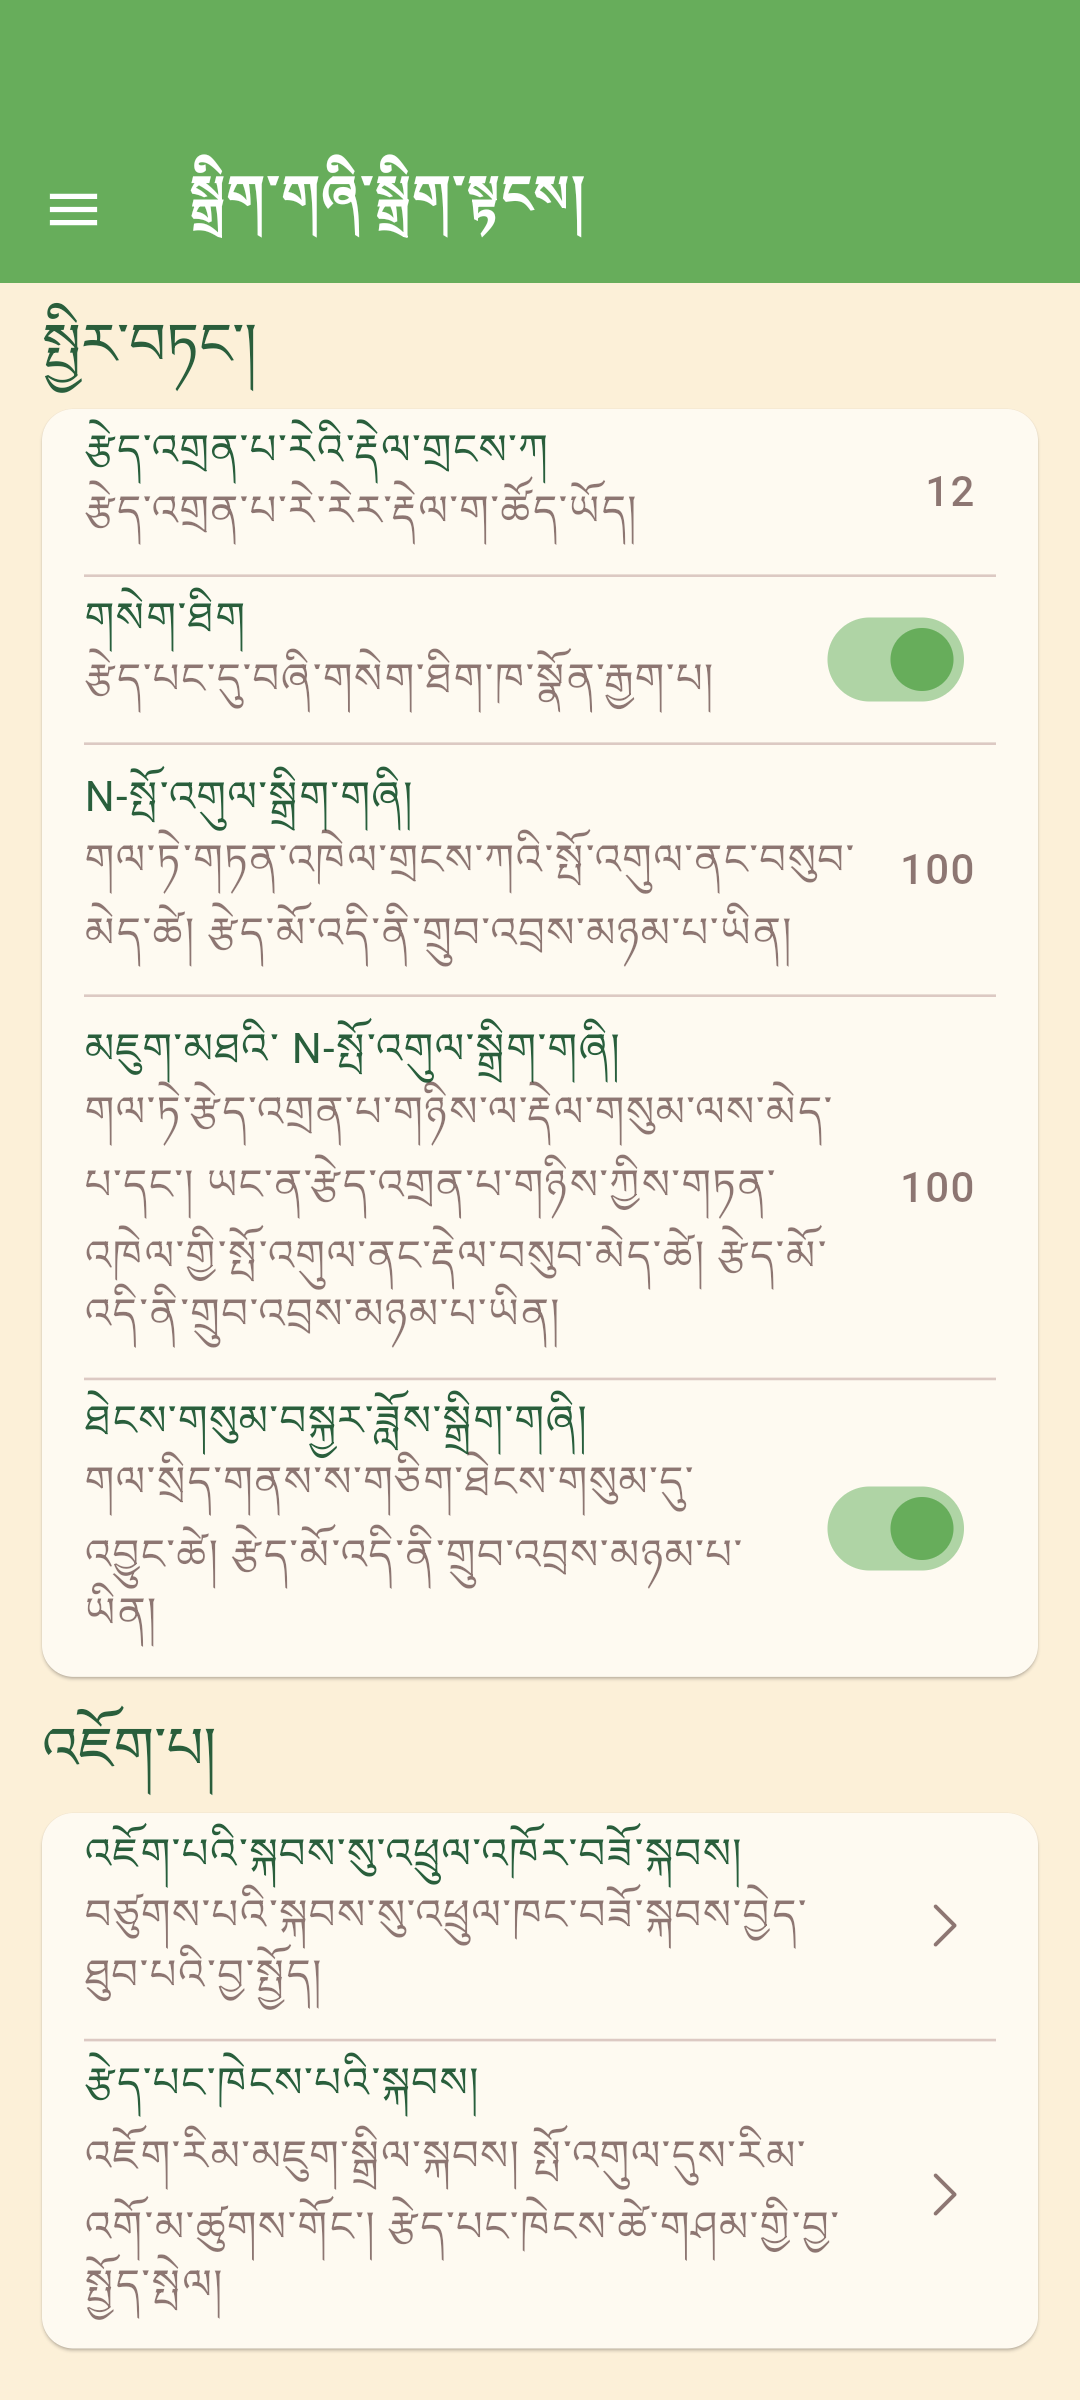 སྒྲིག་གཞི་སྒྲིག་སྟངས།
སྤྱིར་བཏང་།
རྩེད་འགྲན་པ་རེའི་རྡེལ་གྲངས་ཀ
རྩེད་འགྲན་པ་རེ་རེར་རྡེལ་ག་ཚོད་ཡོད།
12
གསེག་ཐིག
རྩེད་པང་དུ་བཞི་གསེག་ཐིག་ཁ་སྣོན་རྒྱག་པ།
N-སྤོ་འགུལ་སྒྲིག་གཞི།
གལ་ཏེ་གཏན་འཁེལ་གྲངས་ཀའི་སྤོ་འགུལ་ནང་བསུབ་
མེད་ཚེ། རྩེད་མོ་འདི་ནི་གྲུབ་འབྲས་མཉམ་པ་ཡིན།
100
མཇུག་མཐའི་ N-སྤོ་འགུལ་སྒྲིག་གཞི།
གལ་ཏེ་རྩེད་འགྲན་པ་གཉིས་ལ་རྡེལ་གསུམ་ལས་མེད་
པ་དང་། ཡང་ན་རྩེད་འགྲན་པ་གཉིས་ཀྱིས་གཏན་
འཁེལ་གྱི་སྤོ་འགུལ་ནང་རྡེལ་བསུབ་མེད་ཚེ། རྩེད་མོ་
འདི་ནི་གྲུབ་འབྲས་མཉམ་པ་ཡིན།
100
ཐེངས་གསུམ་བསྐྱར་ཟློས་སྒྲིག་གཞི།
གལ་སྲིད་གནས་ས་གཅིག་ཐེངས་གསུམ་དུ་
འབྱུང་ཚེ། རྩེད་མོ་འདི་ནི་གྲུབ་འབྲས་མཉམ་པ་
ཡིན།
འཇོག་པ།
འཇོག་པའི་སྐབས་སུ་འཕྲུལ་འཁོར་བཟོ་སྐབས།
བཙུགས་པའི་སྐབས་སུ་འཕྲུལ་ཁང་བཟོ་སྐབས་བྱེད་
ཐུབ་པའི་བྱ་སྤྱོད།
རྩེད་པང་ཁེངས་པའི་སྐབས།
འཇོག་རིམ་མཇུག་སྒྲིལ་སྐབས། སྤོ་འགུལ་དུས་རིམ་
འགོ་མ་ཚུགས་གོང་། རྩེད་པང་ཁེངས་ཚེ་གཤམ་གྱི་བྱ་
སྤྱོད་སྤེལ།